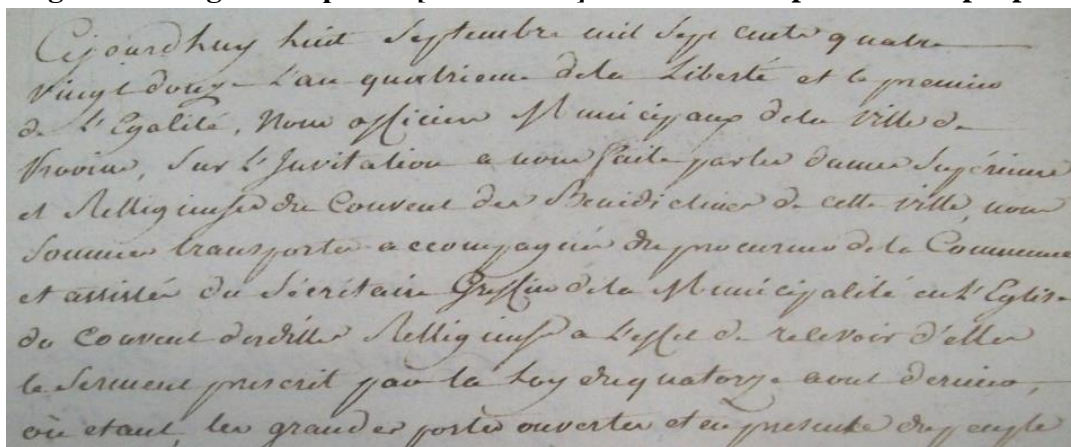 Cejourdhuy huit Septembre mil Sept cents quatre
vingt douze L'an quatrieme dela Liberté et le premier
de L'Egalité, Nous officiers Municipaux dela Ville de
Provins, Sur L'Invitation a nous faite par les dames Supérieure
et Relligieuses du Couvent des Benidictines de cette ville, nous
Sommes transportés accompagnés du procureur dela Commune
et assistés du Sécrétaire Greffier dela Municipalité en L'Eglise
du Couvent desdittes Relligieuses a L'effet de recevoir d'elles
le Serment prescrit par la Loy du quatorze aout dernier,
où etant, les grandes portes ouvertes et en presence du peuple